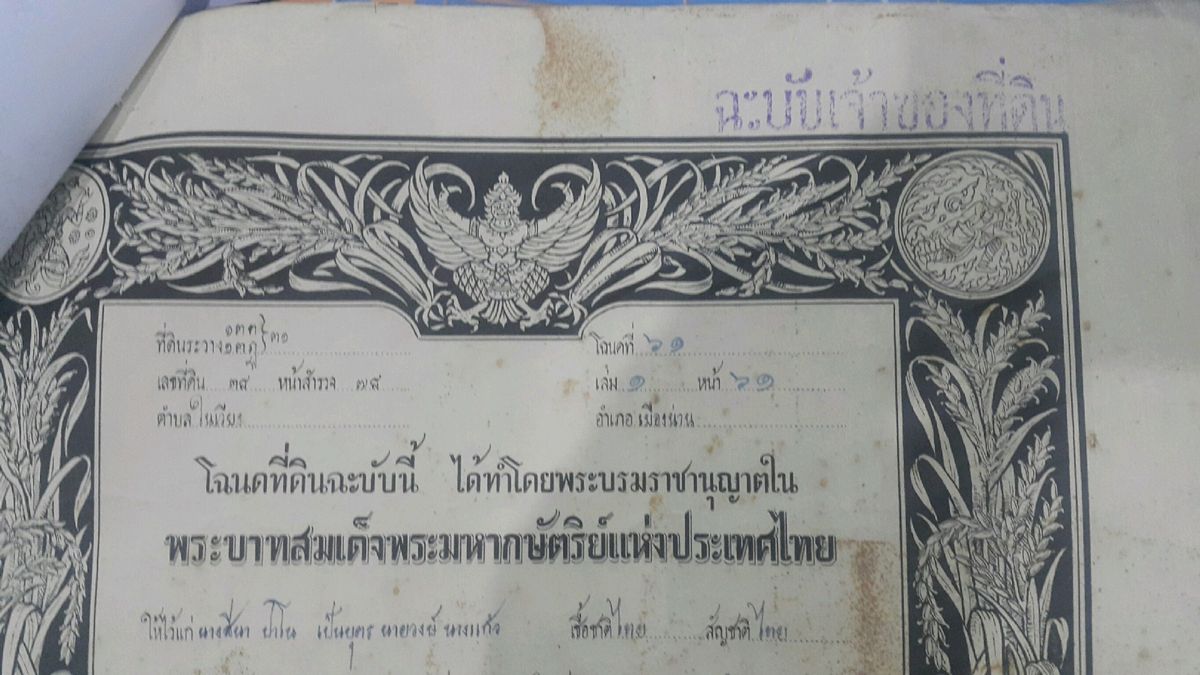 ฉะบับเจ้าของที่ดิน
ที่ดินระวาง โฉนดที่ ๖๑
เลขที่ดิน ๓๙ หน้าสำรวจ ๗๙ เล่ม ๑ หน้า ๖๑
ตำบล ในเวียง อำเภอ เมืองน่าน
โฉนดที่ดินฉะบับนี้ ได้ทำโดยพระบรมราชานุญาตใน
พระบาทสมเด็จพระมหากษัตริย์แห่งประเทศไทย
ให้ไว้แก่ นาง เป็นบุตร นายวงษ์ นางแก้ว เชื้อชาติ ไทย สัญชาติ ไทย